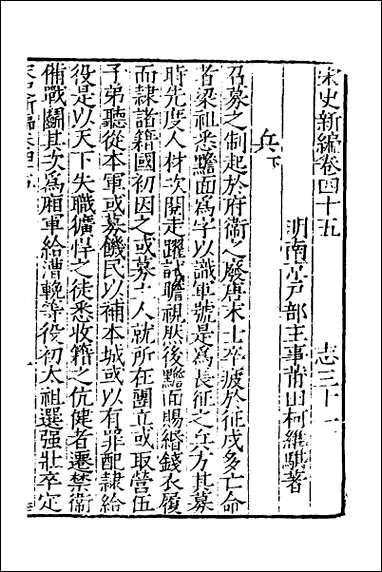 宋史新編卷四十五　志三十一
明南京戶部主事莆田柯維騏著
兵下
召募之制起於府衛之廢唐末士卒疲於征戍多亡命
者梁祖悉黵面為字以識軍號是為長征之兵方其募
時先度人材次閱走躍試瞻視然後黵面賜緡錢衣履
而隸諸籍國初因之或募土人就所在團立或取營伍
子弟聽從本軍或募饑民以補本城或以有罪配隸給
役是以天下失職獷悍之徒悉收籍之伉健者遷禁衛
備戰鬬其次為厢軍給漕輓等役初太祖選强壯卒定